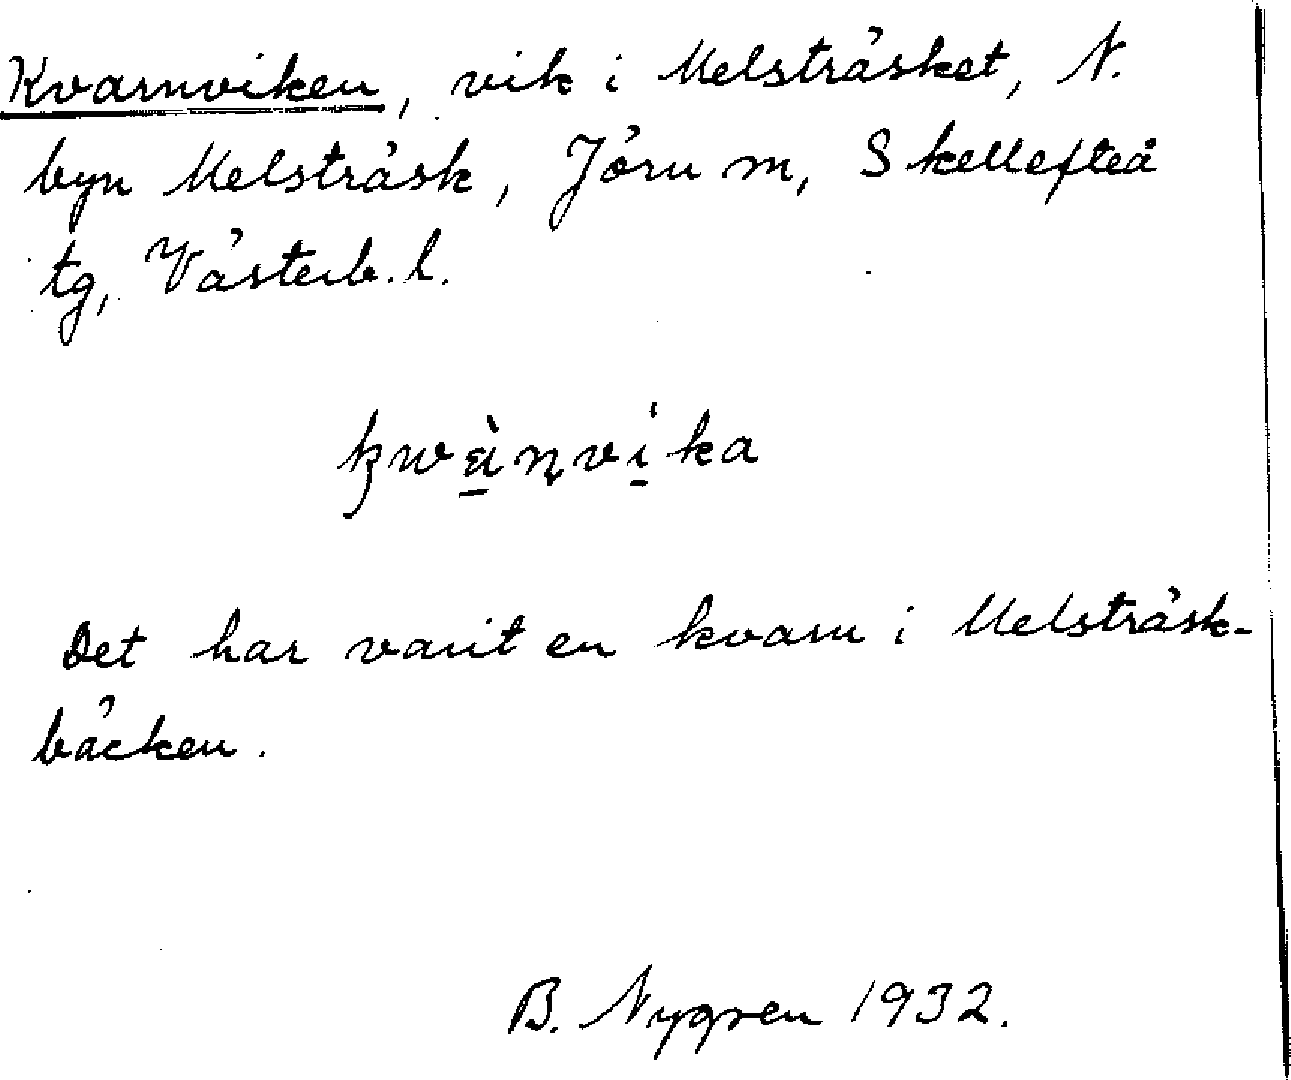 Kvarnviken, vik i Melsträsket, N.
byn Melsträsk, Jörn m, Skellefteå
tg, Västerb. l.
Det har varit en kvarn i Melsträsk-
bäcken.
B. Nygren 1932.